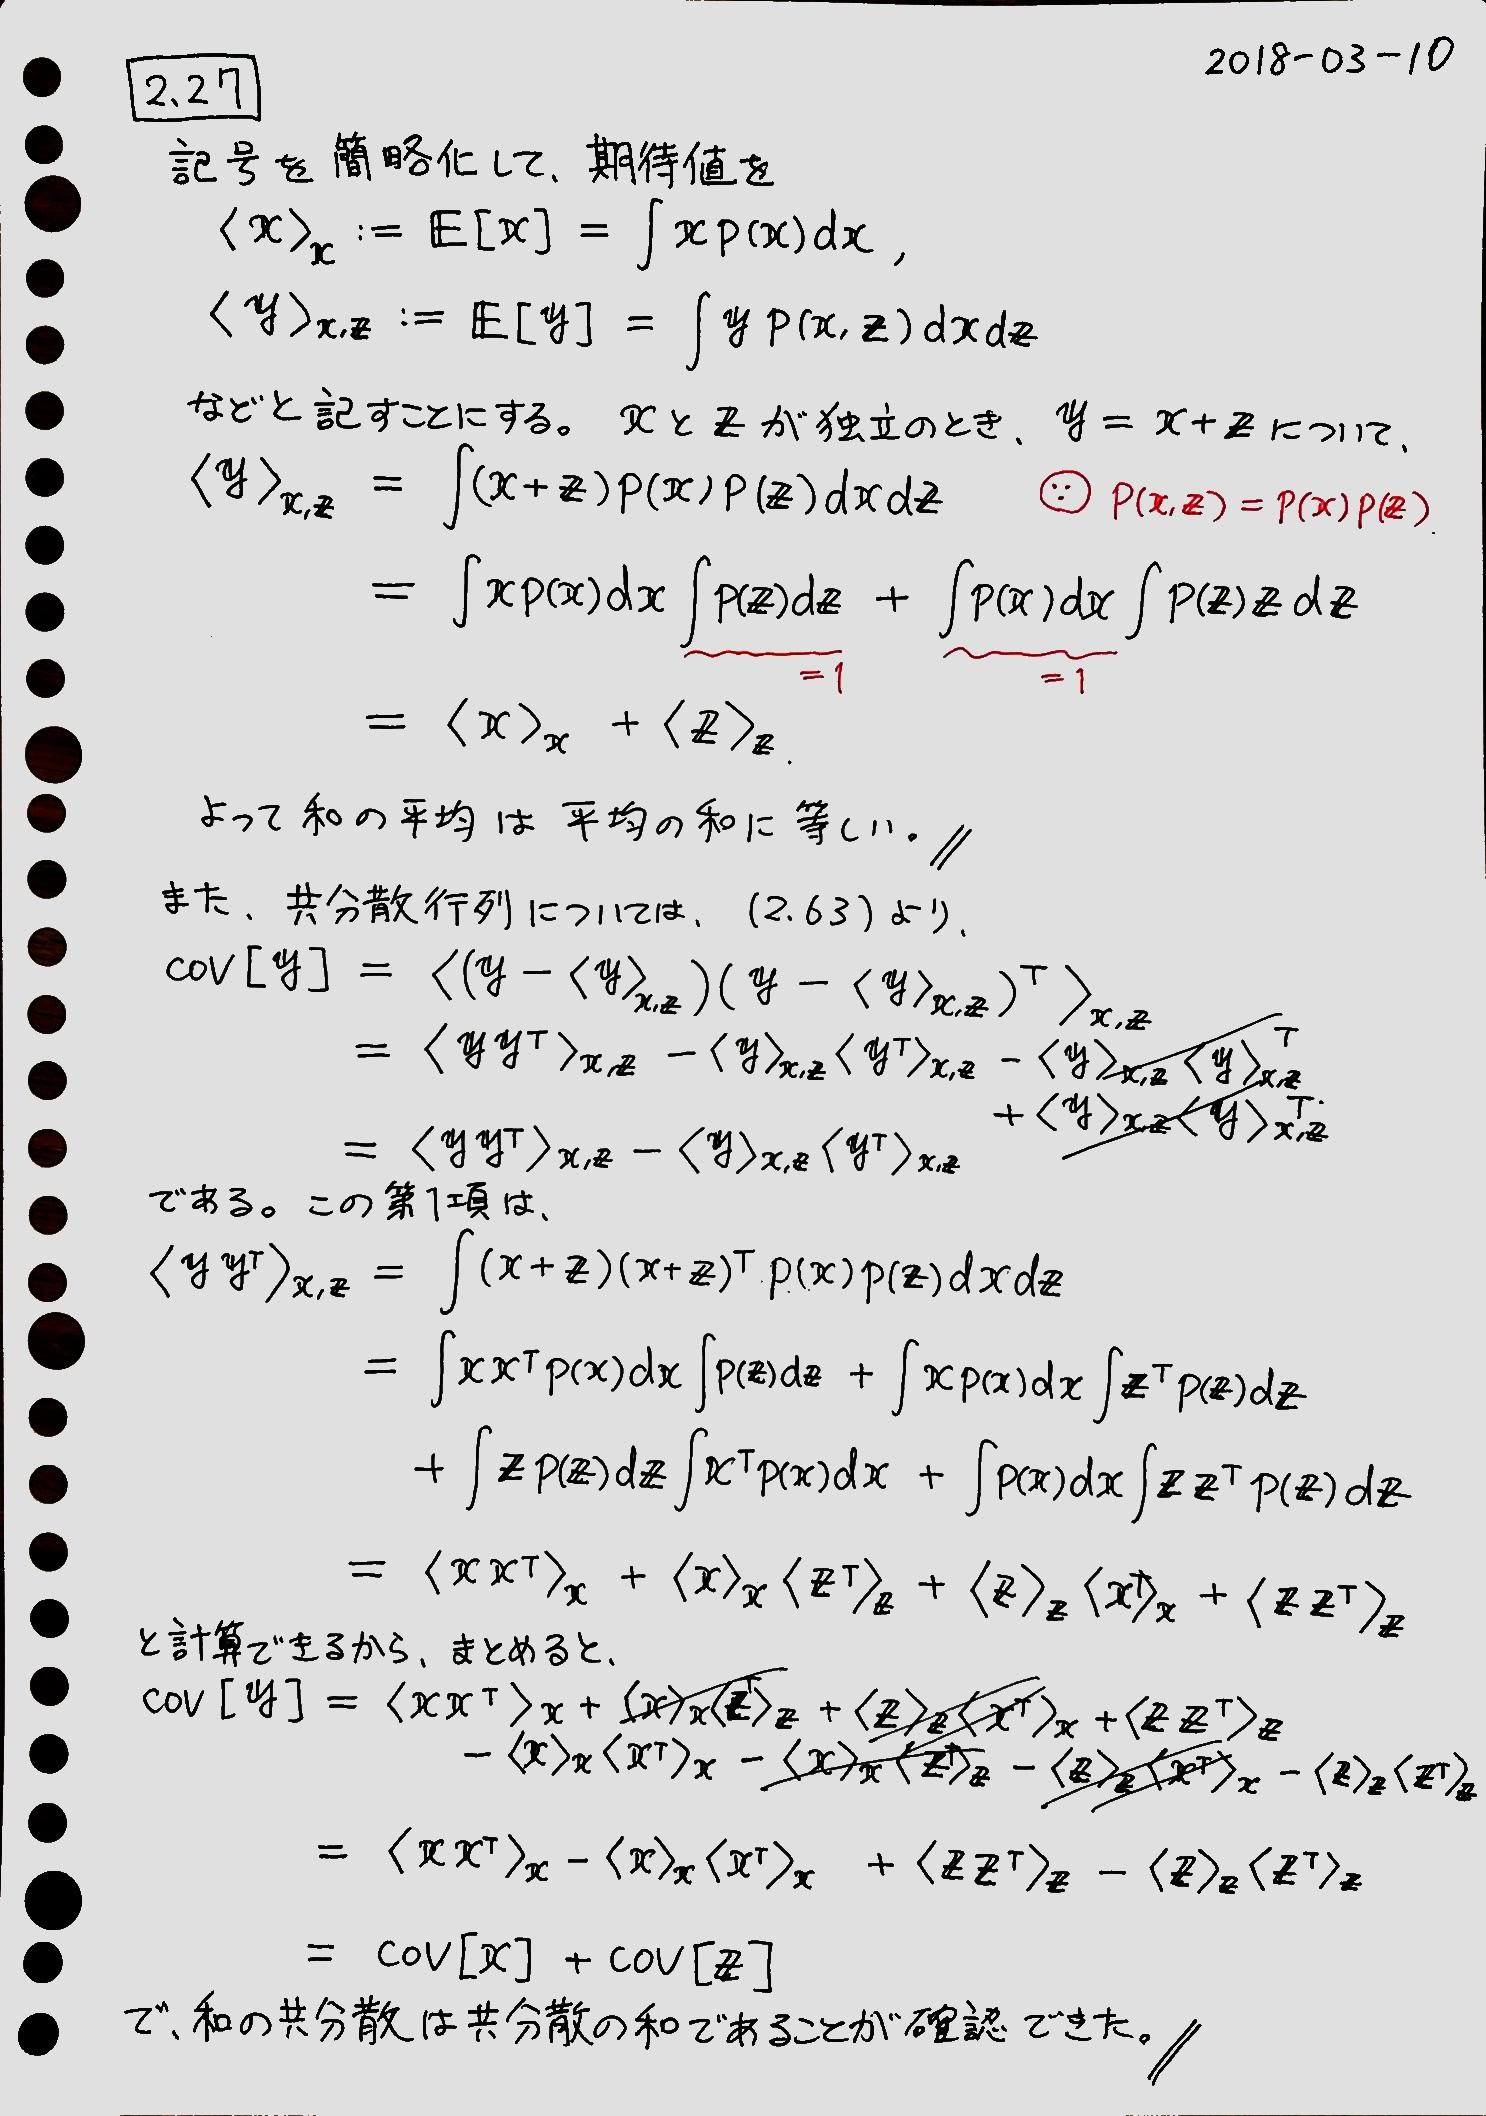 2018-03-10
2.27
記号を簡略化して、期待値を
⟨x⟩_x := E[x] = ∫ x p(x) dx ,
⟨y⟩_{x,z} := E[y] = ∫ y p(x, z) dx dz
などと記すことにする。 x と z が独立のとき、 y = x + z について、
⟨y⟩_{x,z} = ∫ (x + z) p(x) p(z) dx dz ∵ p(x, z) = p(x) p(z).
= ∫ x p(x) dx ∫ p(z) dz + ∫ p(x) dx ∫ p(z) z dz
= 1 = 1
= ⟨x⟩_x + ⟨z⟩_z .
よって和の平均は平均の和に等しい。//
また、共分散行列については、(2.63)より、
cov[y] = ⟨(y − ⟨y⟩_{x,z})(y − ⟨y⟩_{x,z})^T⟩_{x,z}
= ⟨y y^T⟩_{x,z} − ⟨y⟩_{x,z}⟨y^T⟩_{x,z} − ⟨y⟩_{x,z}⟨y⟩_{x,z}^T
+ ⟨y⟩_{x,z}⟨y⟩_{x,z}^T.
= ⟨y y^T⟩_{x,z} − ⟨y⟩_{x,z}⟨y^T⟩_{x,z}
である。この第1項は、
⟨y y^T⟩_{x,z} = ∫ (x + z)(x + z)^T p(x) p(z) dx dz
= ∫ x x^T p(x) dx ∫ p(z) dz + ∫ x p(x) dx ∫ z^T p(z) dz
+ ∫ z p(z) dz ∫ x^T p(x) dx + ∫ p(x) dx ∫ z z^T p(z) dz
= ⟨x x^T⟩_x + ⟨x⟩_x⟨z^T⟩_z + ⟨z⟩_z⟨x^T⟩_x + ⟨z z^T⟩_z
と計算できるから、まとめると、
cov[y] = ⟨x x^T⟩_x + ⟨x⟩_x⟨z^T⟩_z + ⟨z⟩_z⟨x^T⟩_x + ⟨z z^T⟩_z
− ⟨x⟩_x⟨x^T⟩_x − ⟨x⟩_x⟨z^T⟩_z − ⟨z⟩_z⟨x^T⟩_x − ⟨z⟩_z⟨z^T⟩_z
= ⟨x x^T⟩_x − ⟨x⟩_x⟨x^T⟩_x + ⟨z z^T⟩_z − ⟨z⟩_z⟨z^T⟩_z
= cov[x] + cov[z]
で、和の共分散は共分散の和であることが確認できた。//